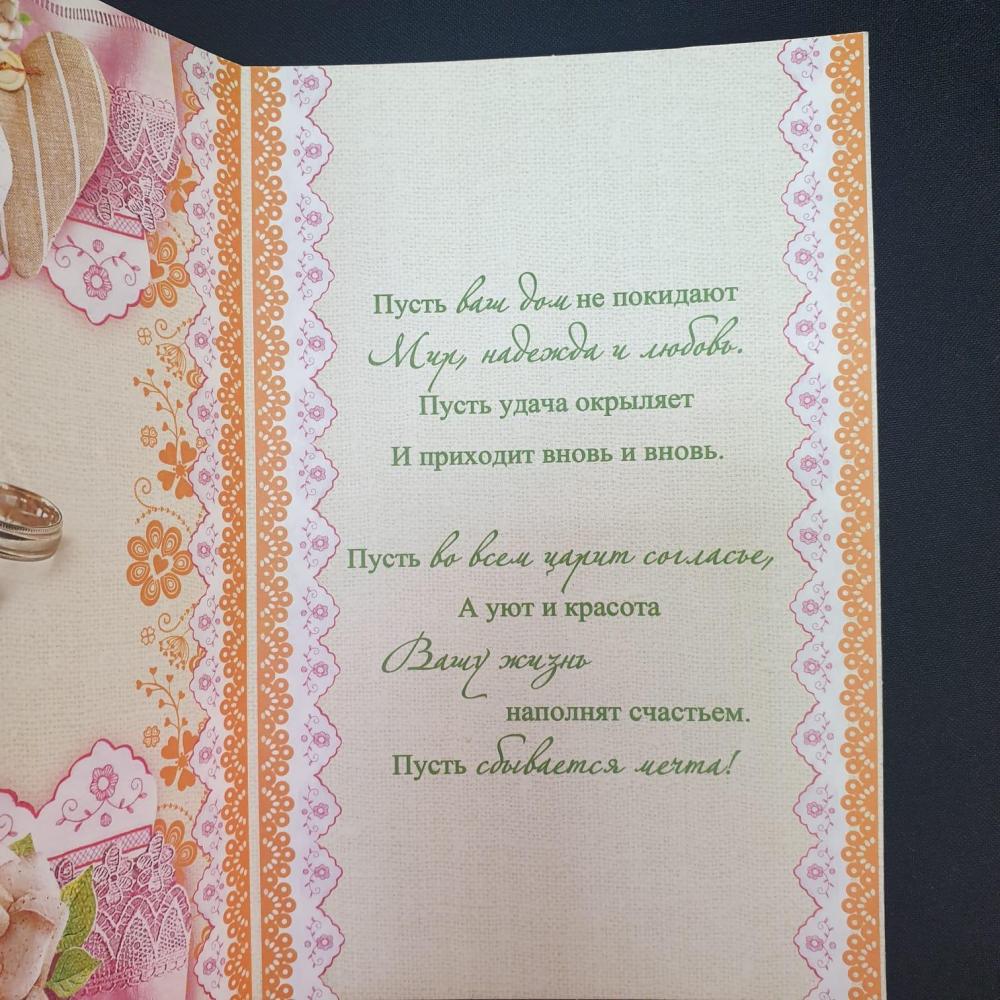 Пусть ваш дом не покидают
Мир, надежда и любовь.
Пусть удача окрыляет
И приходит вновь и вновь.
Пусть во всем царит согласье,
А уют и красота
Вашу жизнь
наполнят счастьем.
Пусть сбывается мечта!